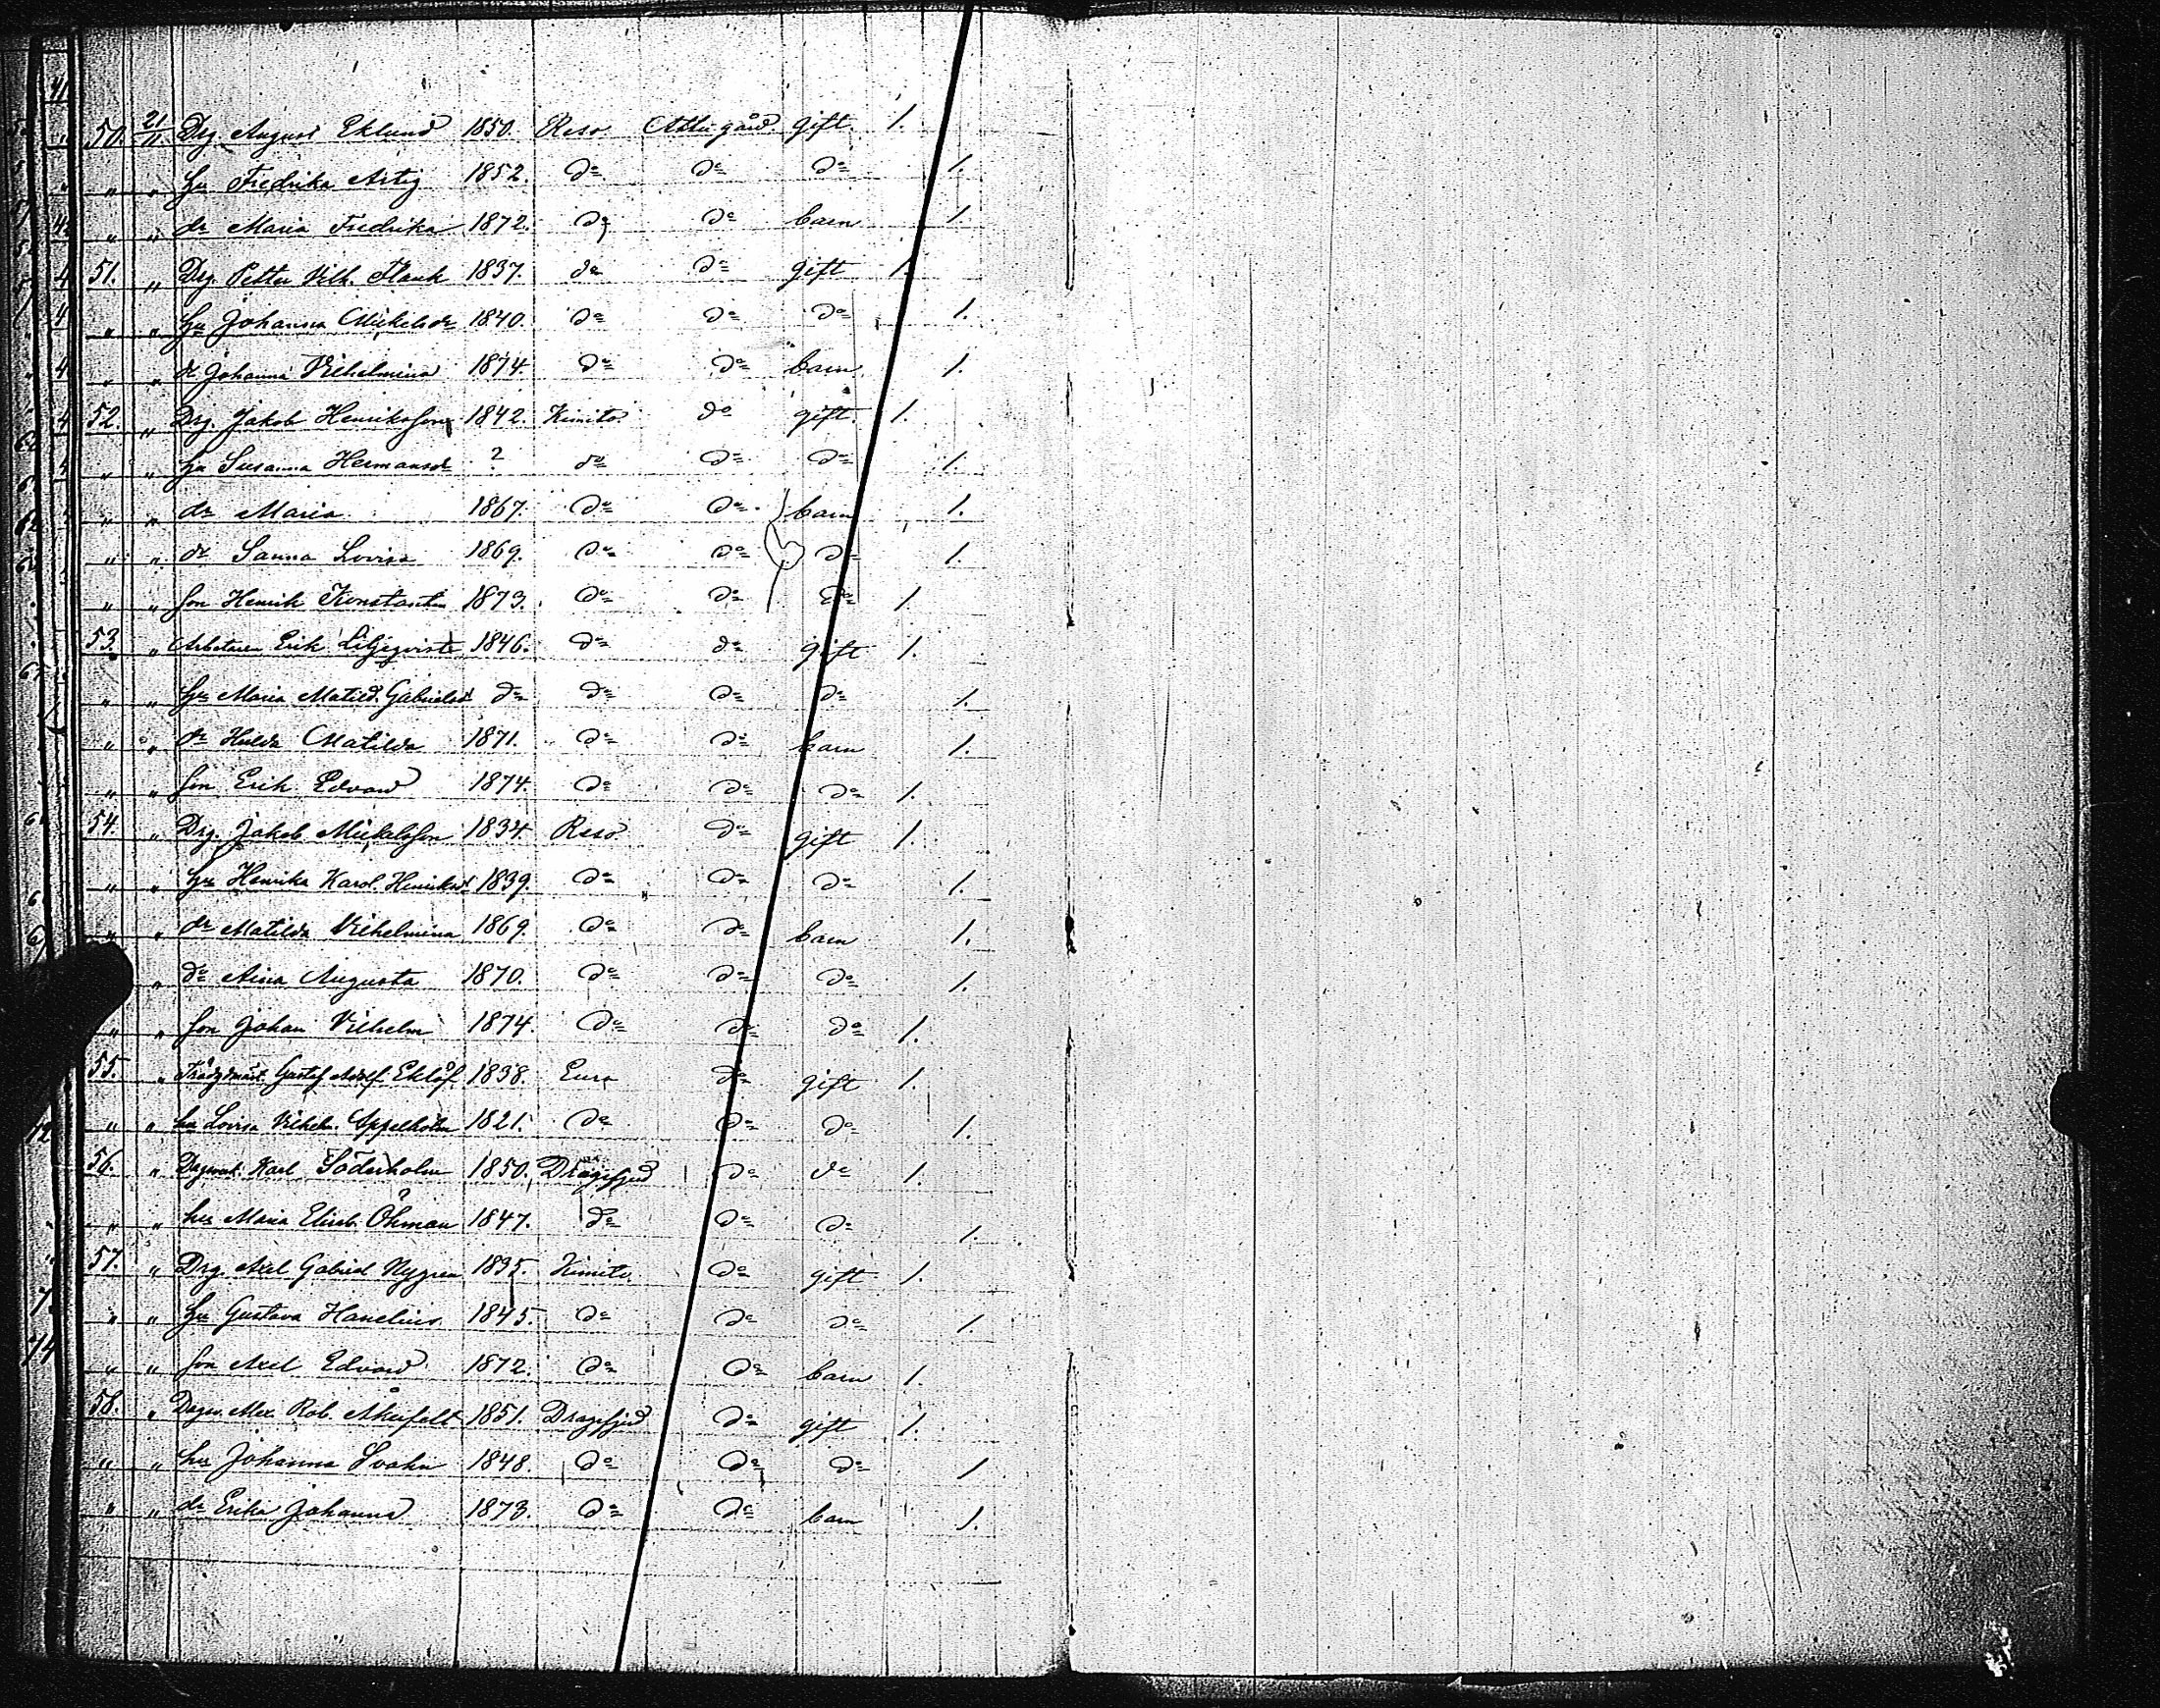 50. 21/11 Drg August Eklund 1850. Reso Attu gård gift 1.
" " hu Fredrika Artig 1852. do do do 1.
" " dr Maria Fredrika 1872. do do barn 1.
51. " Drg. Petter Vilh. Flank 1837. do do gift 1.
" " hu Johanna Mickelsdr 1840. do do do 1.
" " dr Johanna Vilhelmina 1874. do do barn 1.
52. " Drg. Jakob Henriksson 1842. Kimito do gift. 1.
" " hu Susanna Hermansdr ? do do do 1.
" " dr Maria 1867. do do barn 1.
" " dr Sanna Lovisa 1869. do do do 1.
" " son Henrik Konstantin 1873. do do do 1.
53. " Arbetaren Erik Liljeqvist 1846. do do gift 1.
" " hu Maria Matild. Gabrielsd do do do do 1.
" " dr Hulda Matilda 1871. do do barn 1.
" " son Erik Edvard 1874. do do do 1.
54. " Drg. Jakob Mickelsson 1834. Reso do gift 1.
" " hu Henrika Karol. Henriksd 1839. do do do 1.
" " dr Matilda Vilhelmina 1869. do do barn 1.
" dr Aina Augusta 1870. do do do 1.
" " son Johan Vilhelm 1874. do do do 1.
55. " Trädgdmäst. Gustaf Adolf Eklöf 1838. Eura do gift 1.
" " hu Lovisa Vilhelm. Appelholm 1821. do do do 1.
56. " Dagsverk. Karl Söderholm 1850. Dragsfjerd do do 1.
" " hu Maria Elisab. Öhman 1847. do do do 1.
57. " Drg. Axel Gabriel Nygren 1835. Kimito do gift 1.
" " hu Gustava Hanelius 1845. do do do 1.
" " son Axel Edvard 1872. do do barn 1.
58. " Dagsv. Alex. Rob. Åkerfelt 1851. Dragsfjerd do gift 1.
" " hu Johanna Svahn 1848. do do do 1
" " dr Erika Johanna 1873. do do barn 1.